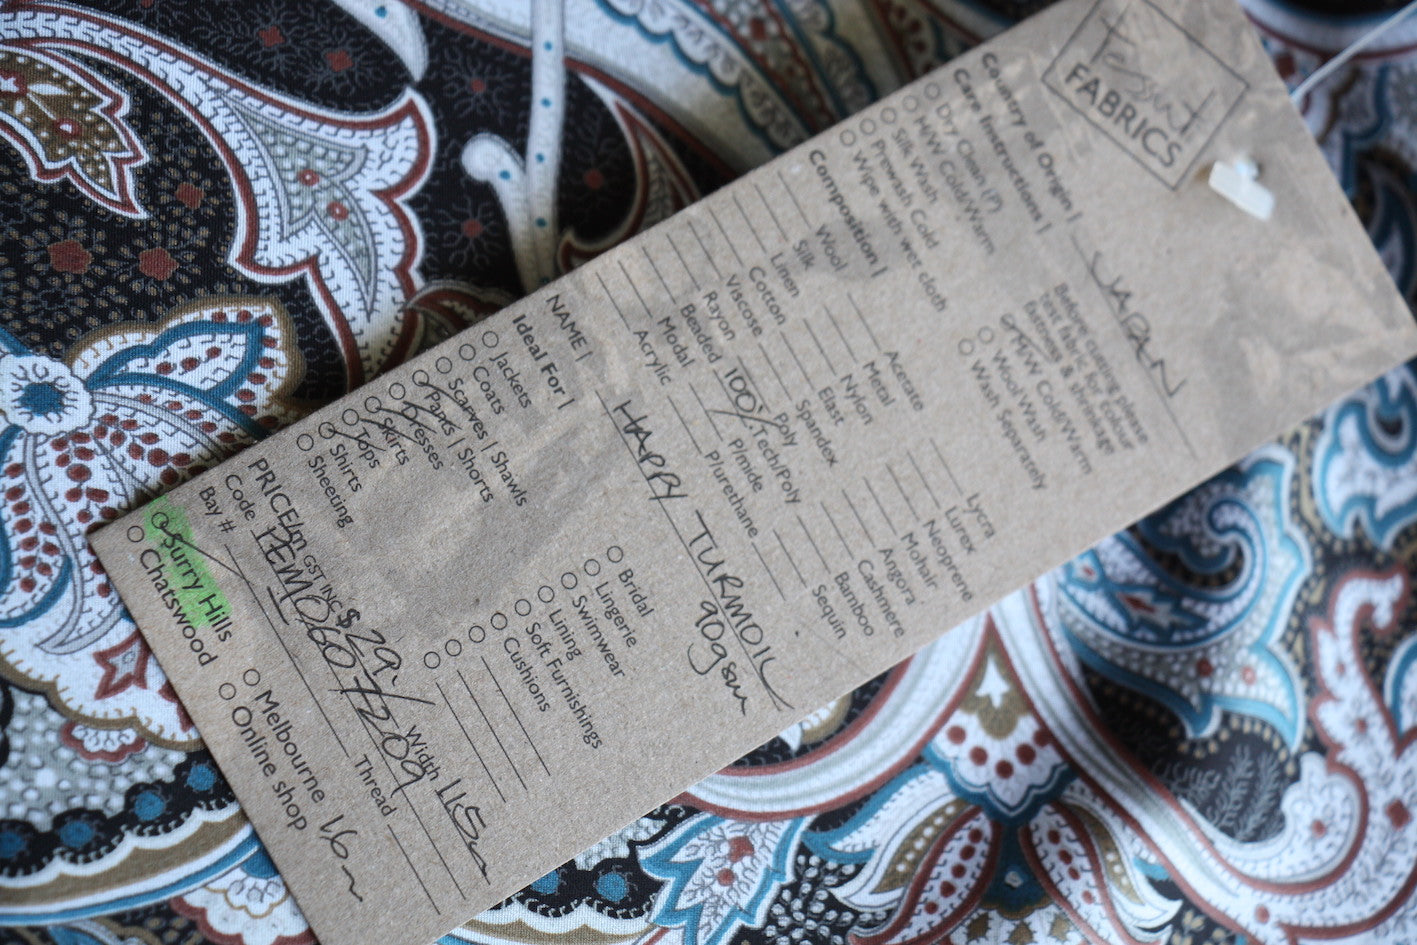 Tessuti
FABRICS
Country of Origin | JAPAN
Care Instructions |
Dry Clean (P)
H/W Cold/Warm
Silk Wash
Prewash Cold
Wipe with wet cloth
Before cutting please
test fabric for colour
fastness & shrinkage
G M/W Cold/Warm
Wool Wash
Wash Separately
Composition |
Wool
Silk
Linen
Cotton
Viscose
Rayon
Beaded
Modal
Acrylic
Acetate
Metal
Nylon
Elast
Spandex
Poly
100% Tech/Poly
P/mide
Plurethane
Lycra
Lurex
Neoprene
Mohair
Angora
Cashmere
Bamboo
Sequin
NAME | HAPPY TURMOIL
90gsm
Ideal For |
Jackets
Coats
Scarves | Shawls
Pants | Shorts
Dresses
Skirts
Tops
Shirts
Sheeting
Bridal
Lingerie
Swimwear
Lining
Soft Furnishings
Cushions
PRICE/m GST INC $29.- Width 115cm
Code
Bay #
Thread
Surry Hills
Chatswood
Melbourne
Online shop
1.6m